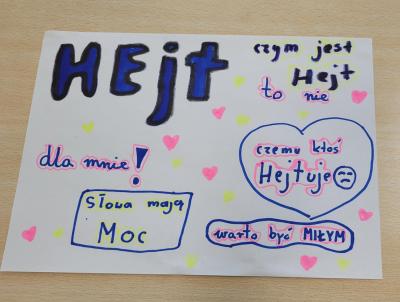 HEjt
czym jest
Hejt
to nie
dla mnie!
czemu ktoś
Hejtuje
Słowa mają
Moc
warto być MIŁYM